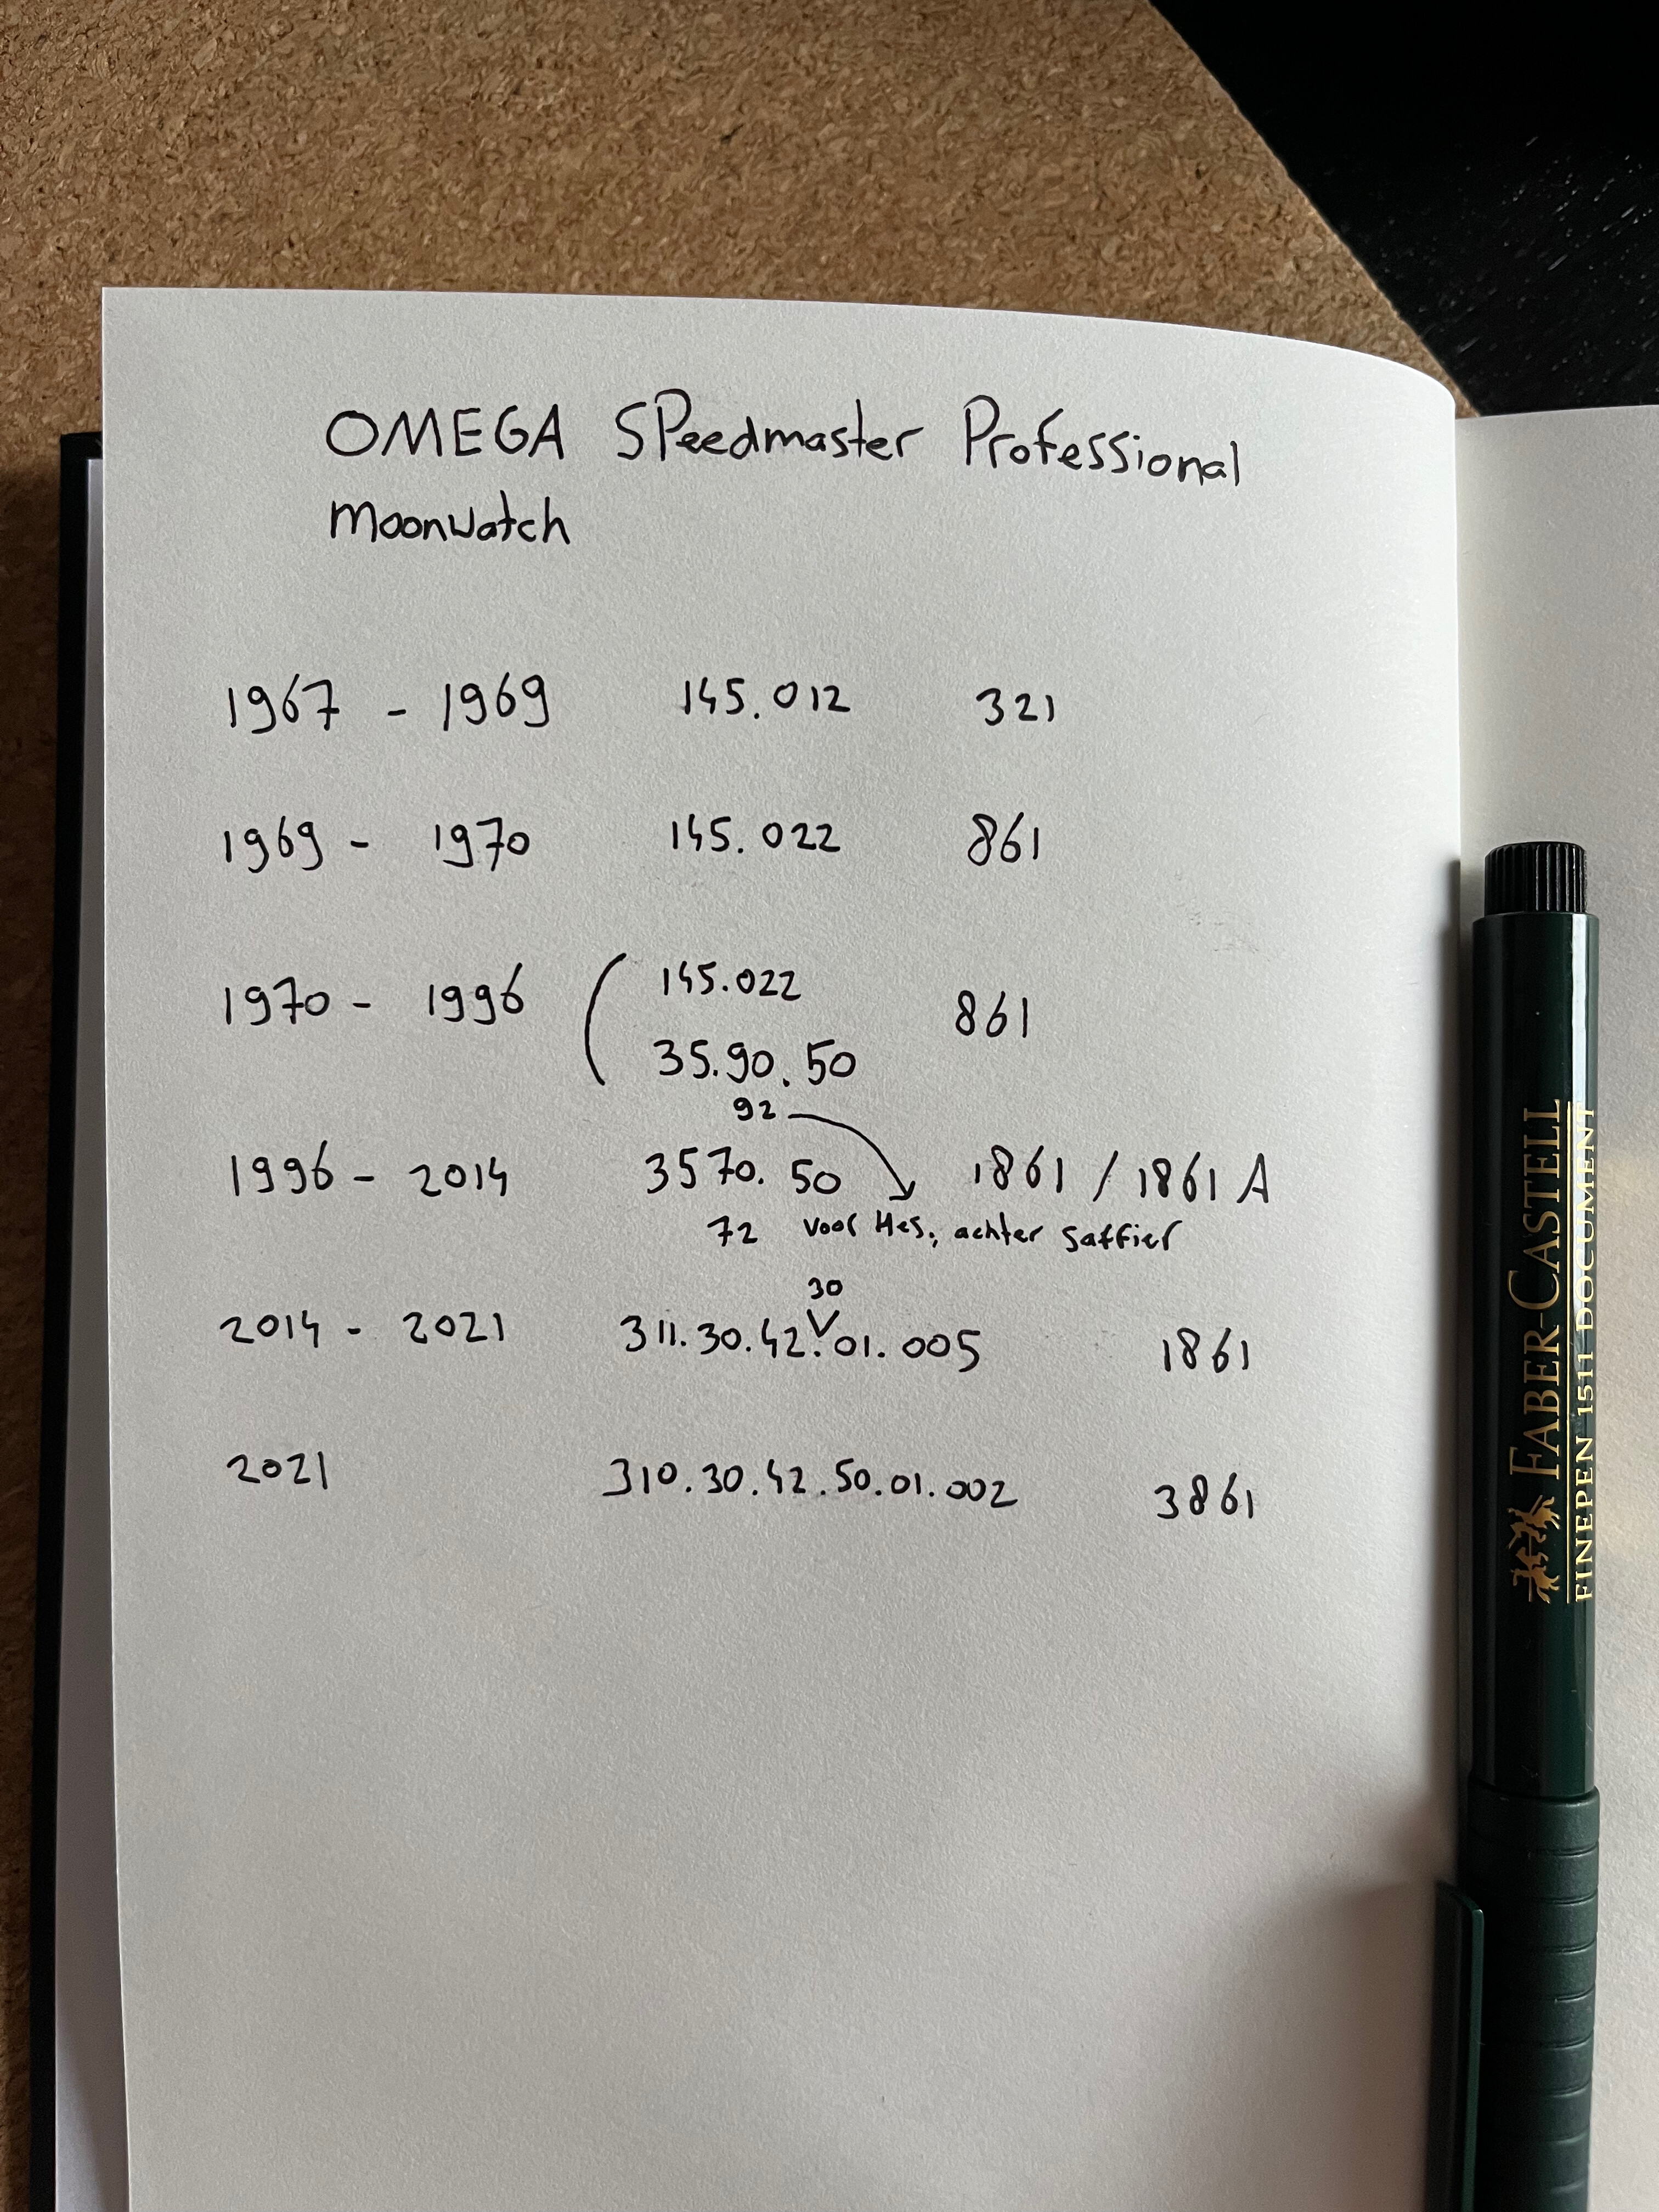 OMEGA Speedmaster Professional
Moonwatch
1967 - 1969 145.012 321
1969 - 1970 145.022 861
1970 - 1996 ( 145.022 861
35.90.50
92
1996 - 2014 3570.50 1861 / 1861 A
72 voor Hes., achter saffier
30
2014 - 2021 311.30.42.01.005 1861
2021 310.30.42.50.01.002 3861
FABER-CASTELL
FINEPEN 1511 DOCUMENT